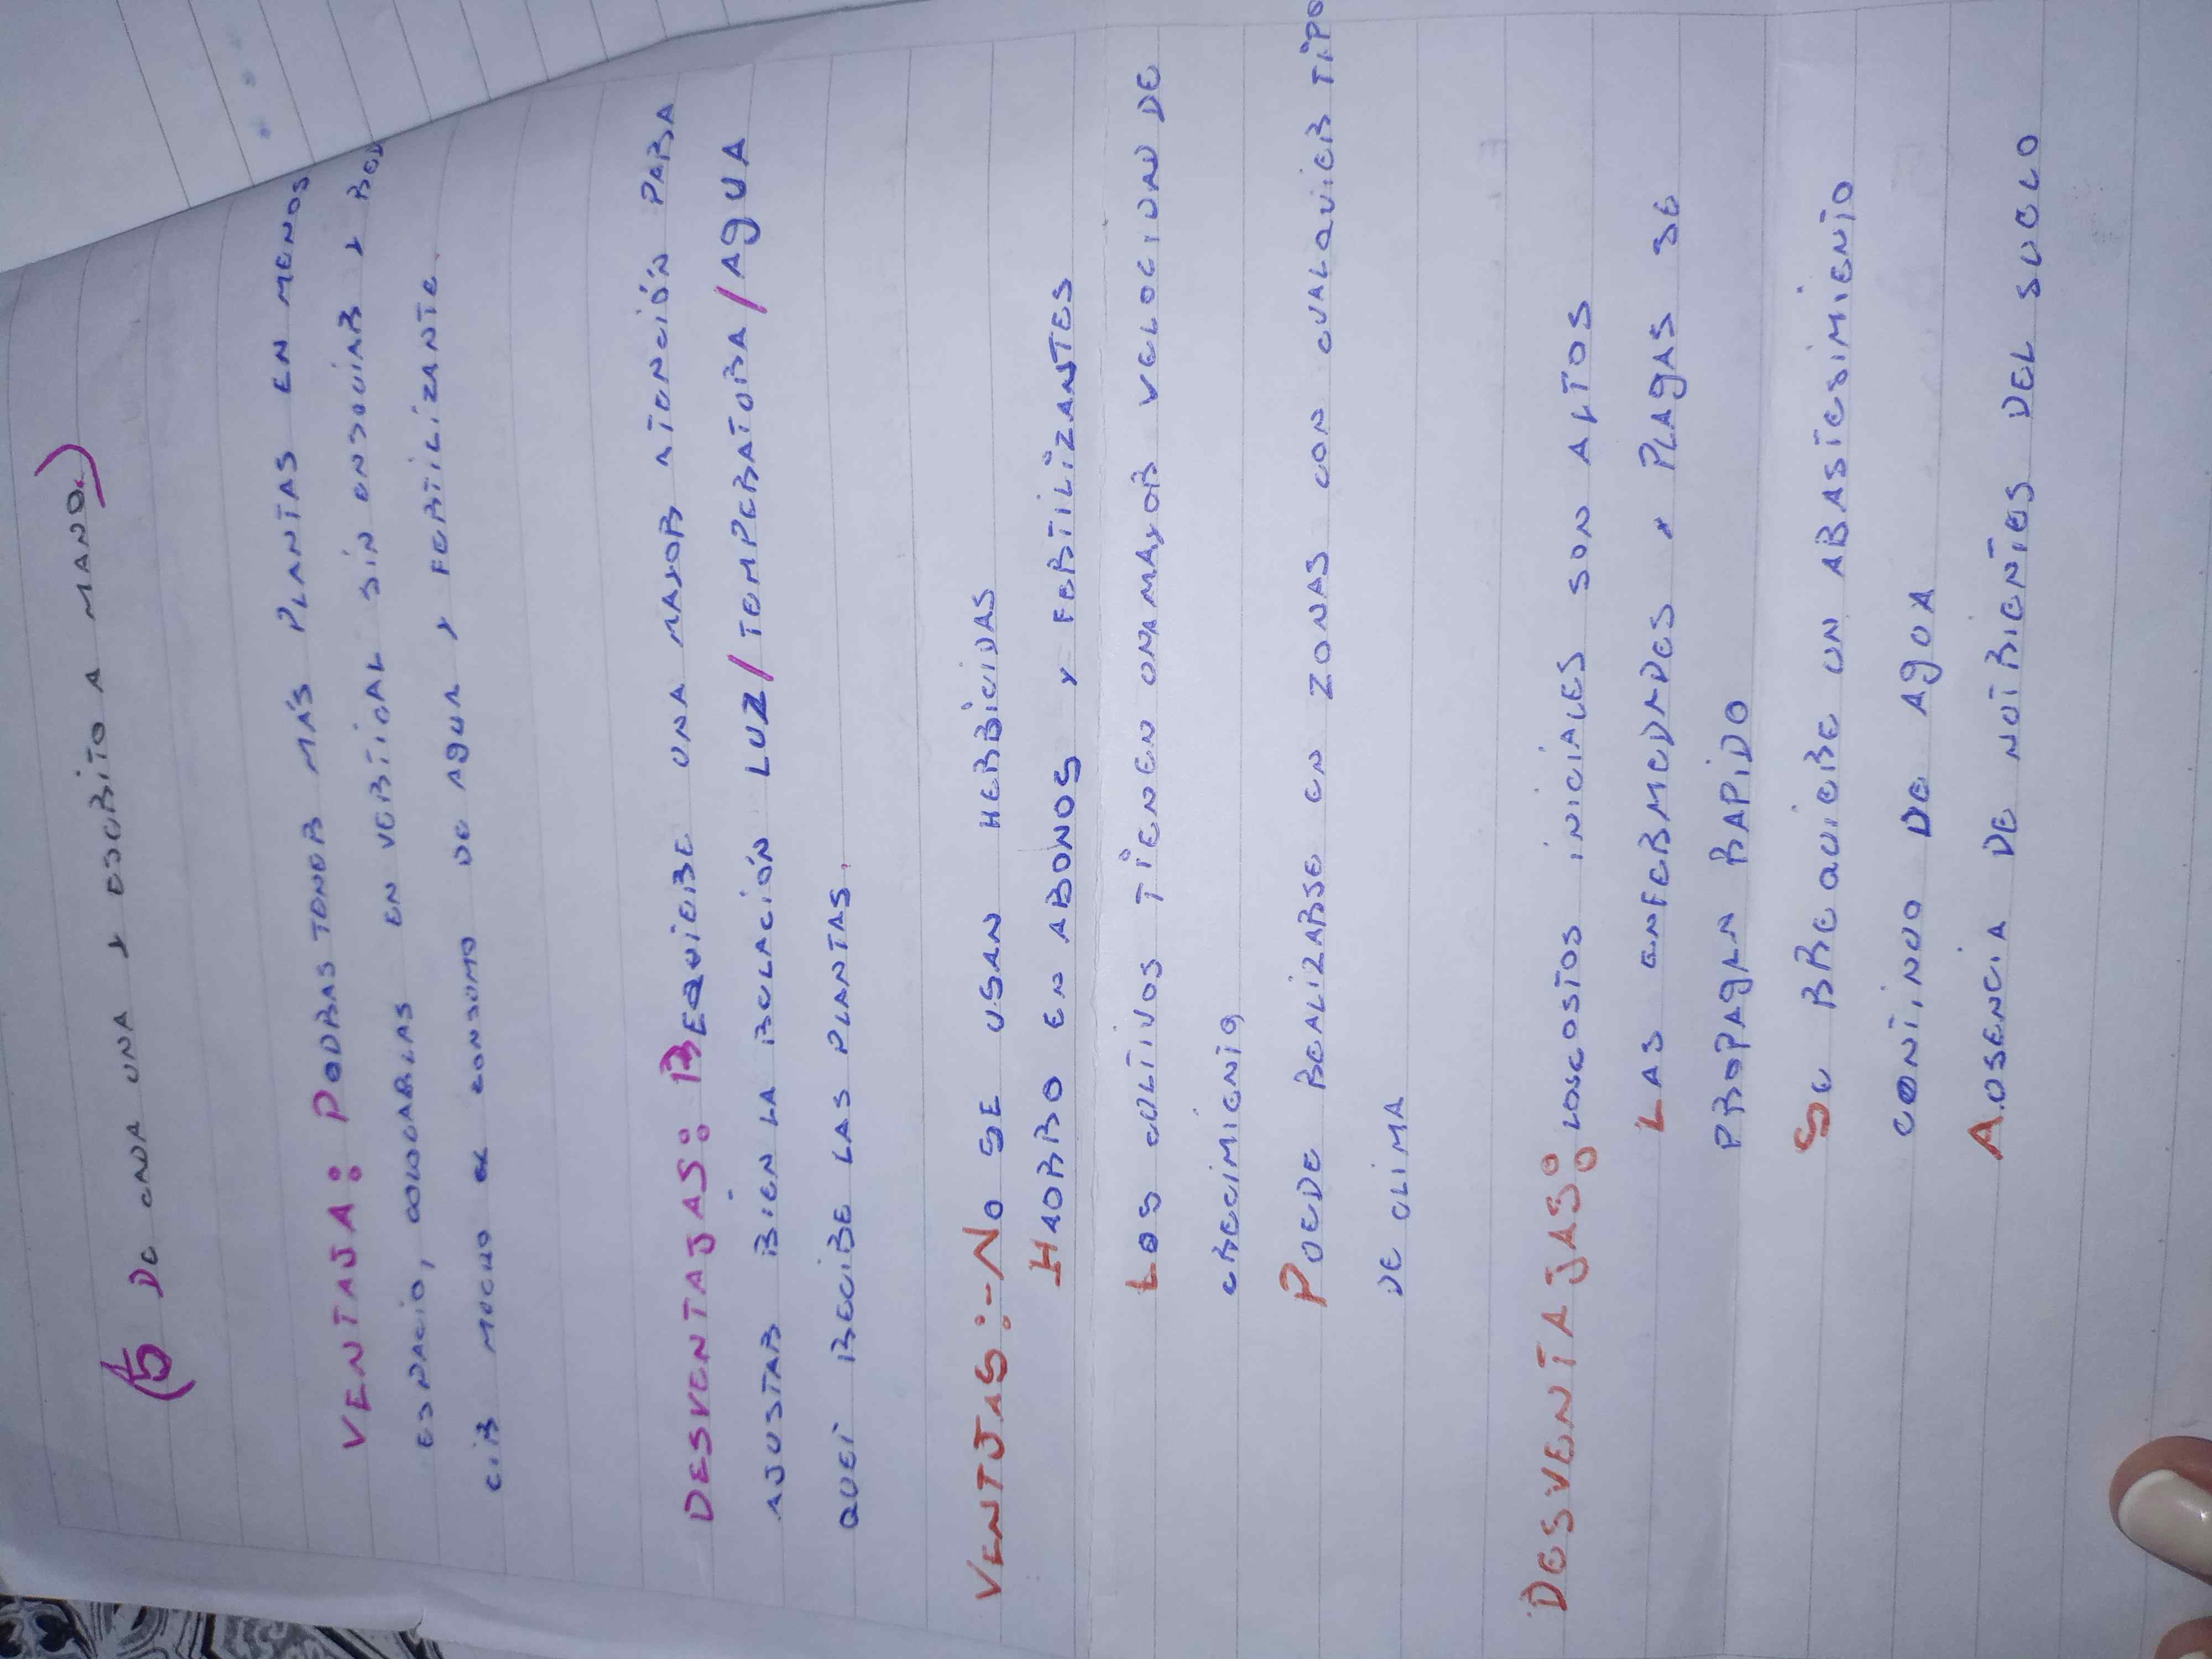 (5 DE CADA UNA Y ESCRITO A MANO.)
VENTAJA: PODRAS TENER MÁS PLANTAS EN MENOS
ESPACIO, COLOCARLAS EN VERTICAL SIN ENSUCIAR Y REDU
CIR MUCHO EL CONSUMO DE AGUA Y FERTILIZANTE.
DESVENTAJAS: REQUIERE UNA MAYOR ATENCIÓN PARA
AJUSTAR BIEN LA RELACIÓN LUZ/TEMPERATURA/AGUA
QUEI RECIBE LAS PLANTAS.
VENTJAS:-NO SE USAN HERBICIDAS
HAORRO EN ABONOS Y FERTILIZANTES
LOS CULTIVOS TIENEN UNA MAYOR VELOCIDAD DE
CRECIMIENTO
PUEDE REALIZARSE EN ZONAS CON CUALQUIER TIPO
DE CLIMA
DESVENTAJAS: LOSCOSTOS INICIALES SON ALTOS
LAS ENFERMEDADES Y PLAGAS SE
PROPAGAN RAPIDO
SE REQUIERE UN ABASTESIMIENTO
CONTINUO DE AGUA
AUSENCIA DE NUTRIENTES DEL SUELO